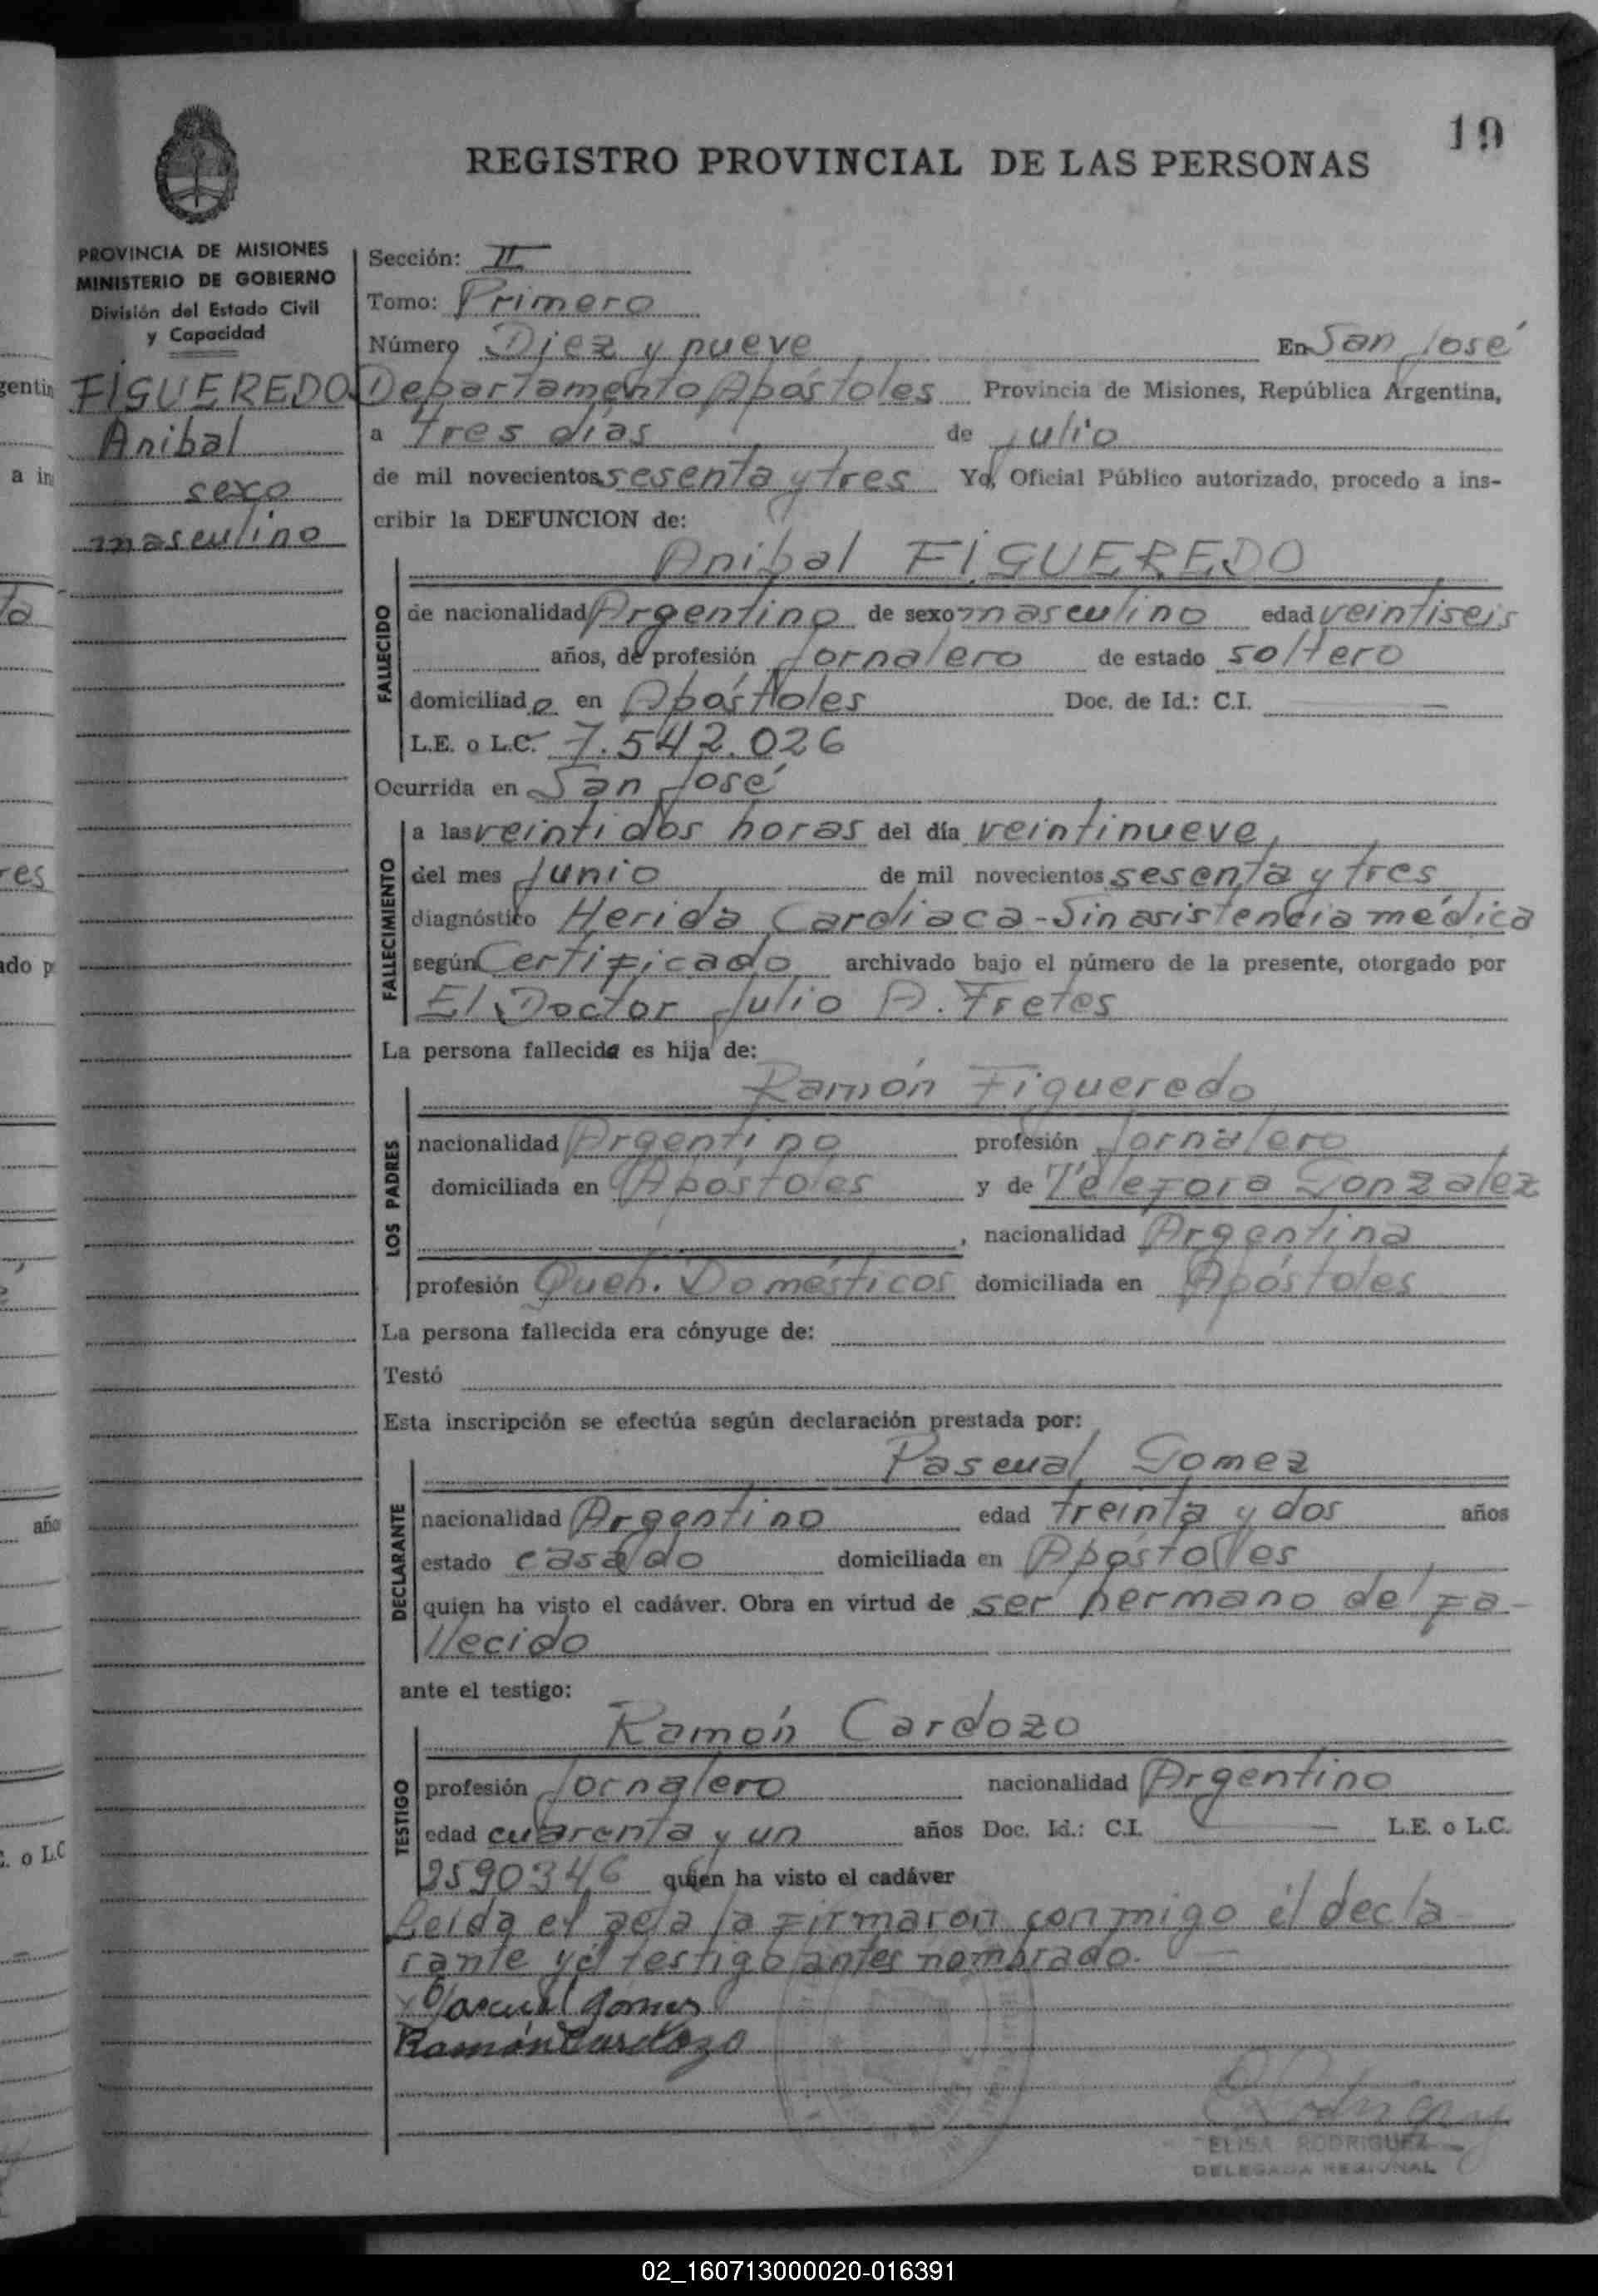 19
REGISTRO PROVINCIAL DE LAS PERSONAS
PROVINCIA DE MISIONES
MINISTERIO DE GOBIERNO
División del Estado Civil
y Capacidad
FIGUEREDO
Anibal
sexo
masculino
Sección: II
Tomo: Primero
Número Diez y nueve En San José
Departamento Apóstoles Provincia de Misiones, República Argentina,
a tres días de julio
de mil novecientos sesenta y tres Yo, Oficial Público autorizado, procedo a ins-
cribir la DEFUNCION de:
Anibal FIGUEREDO
FALLECIDO
de nacionalidad Argentino de sexo masculino edad veintiseis
años, de profesión Jornalero de estado soltero
domiciliado en Apóstoles Doc. de Id.: C.I. —
L.E. o L.C. 7.542.026
Ocurrida en San José
FALLECIMIENTO
a las veinti dos horas del día veintinueve
del mes Junio de mil novecientos sesenta y tres
diagnóstico Herida Cardiaca - Sin asistencia médica
según Certificado archivado bajo el número de la presente, otorgado por
El Doctor Julio A. Fretes
La persona fallecida es hija de:
Ramón Figueredo
LOS PADRES
nacionalidad Argentino profesión Jornalero
domiciliada en Apóstoles y de Télefora Gonzalez
, nacionalidad Argentina
profesión Queh. Domésticos domiciliada en Apóstoles
La persona fallecida era cónyuge de:
Testó
Esta inscripción se efectúa según declaración prestada por:
Pascual Gomez
DECLARANTE
nacionalidad Argentino edad treinta y dos años
estado casado domiciliada en Apóstoles
quien ha visto el cadáver. Obra en virtud de ser hermano del fa-
llecido
ante el testigo:
Ramón Cardozo
TESTIGO
profesión Jornalero nacionalidad Argentino
edad cuarenta y un años Doc. Id.: C.I. — L.E. o L.C.
2590346 quien ha visto el cadáver
Leida el acta la firmaron conmigo él decla
rante y él testigo antes nombrado. —
Pascual Gomes
Ramón Cardozo
ELISA RODRIGUEZ
DELEGADA REGIONAL
02_160713000020-016391